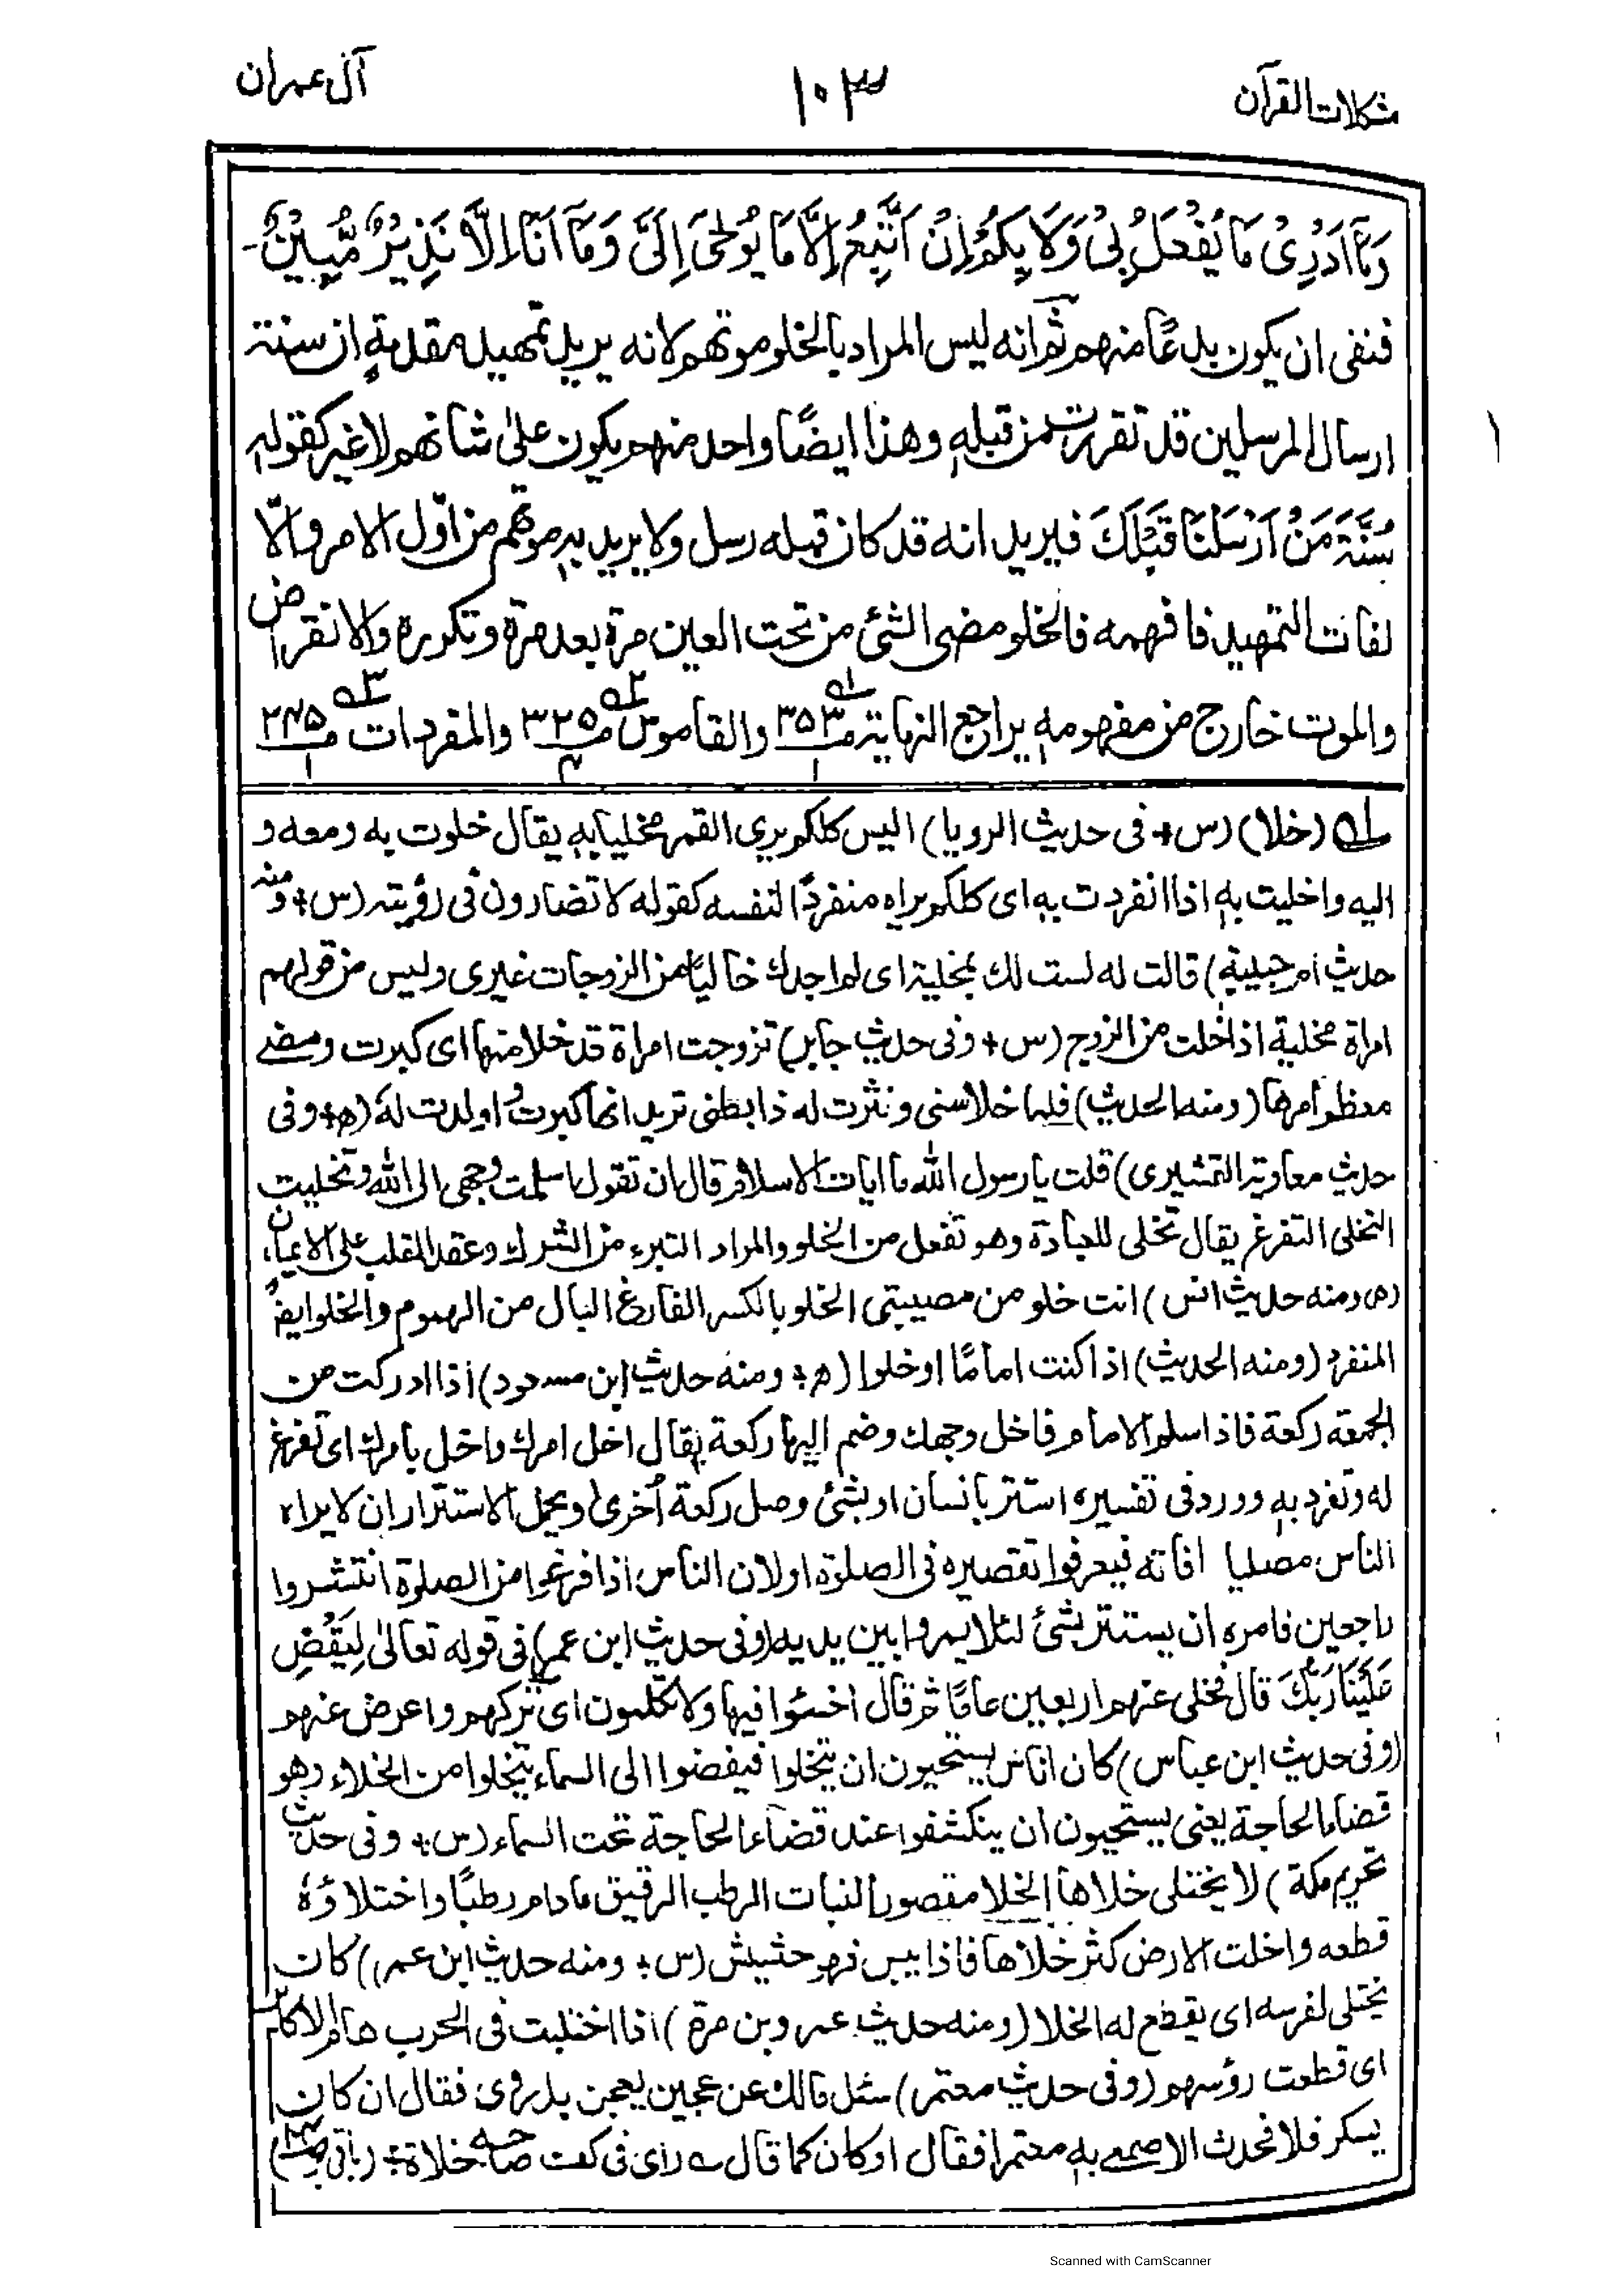 مشكلات القرآن
١٠٣
آل عمران
وَمَآ اَدْرِىْ مَا يُفْعَلُ بِىْ وَلَا بِكُمْ اِنْ اَتَّبِعُ اِلَّا مَا يُوْحٰىٓ اِلَىَّ وَمَآ اَنَا۠ اِلَّا نَذِيْرٌ مُّبِيْنٌ
فنفى ان يكون بدعًا منهم ثم انه ليس المراد بالخلو موتهم لانه يريد تمهيد مقدمةٍ ان سنة
ارسال المرسلين قد تقررت من قبلهٖ وهذا ايضًا واحد منهم يكون على شانهم لا غير كقولهٖ
سُنَّةَ مَنْ اَرْسَلْنَا قَبْلَكَ فيريد انه قد كان قبله رسل ولا يريد بهٖ موتهم من اوّل الامر والّا
لفات التمهيد فافهمه فالخلو مضى الشئ من تحت العين مرة بعد مرة وتكوره والانقراض
والموت خارج من مفهومهٖ يراجع النهاية ٣٥٣/١ والقاموس ٣٢٥/٤ والمفردات ٢٤٥/١
١ه (خلا) (س + فى حديث الرويا) اليس كلكم يرى القمر مخليا بهٖ يقال خلوت به ومعه و
اليه واخليت بهٖ اذا انفردت بهٖ اى كلكم يراه منفردًا لنفسه كقوله لا تضارون فى رؤيته (س + ومنه
حديث ام حبيبة) قالت له لست لك بمخلية اى لم اجدك خاليًا من الزوجات غيرى وليس من قولهم
امراة مخلية اذا خلت من الزوج (س + وفى حديث جابر) تزوجت امراة قد خلا منها اى كبرت ومضى
معظم امرها (ومنه الحديث) فلما خلا سنى ونثرت له ذا بطنى تريد انها كبرت و اولدت لهٗ (ه + وفى
حديث معاوية القشيرى) قلت يا رسول الله ما ايات الاسلام قال ان تقول اسلمت وجهى الى الله وتخليت
التخلى التفرغ يقال تخلى للعبادة وهو تفعل من الخلو والمراد التبرء من الشرك وعقد القلب على الايمان
(ه ومنه حديث انس) انت خلو من مصيبتى الخلو بالكسر الفارغ البال من الهموم والخلو ايضًا
المنفرد (ومنه الحديث) اذا كنت امامًا او خلوا (ه + ومنه حديث ابن مسعود) اذا ادركت من
الجمعة ركعة فاذا سلم الامام فاخل وجهك وضم اليها ركعة يقال اخل امرك واخل بامرك اى تفرغ
له وتفرد بهٖ وورد فى تفسيره استتر بانسان او بشئ وصل ركعة اُخرى ويحمل الاستتار ان لا يراه
الناس مصليا افاته فيعرفوا تقصيره فى الصلوة او لان الناس اذا فرغوا من الصلوة انتشروا
راجعين فامره ان يستتر بشئ لئلا يمروا بين يديه (وفى حديث ابن عمر) فى قوله تعالى لِيَقْضِ
عَلَيْنَا رَبُّكَ قال فخلى عنهم اربعين عامًا ثم قال اخسئوا فيها ولا تكلمون اى تركهم واعرض عنهم
(وفى حديث ابن عباس) كان اناس يستحيون ان يتخلوا فيفضوا الى السماء يتخلوا من الخلاء وهو
قضاء الحاجة يعنى يستحيون ان ينكشفوا عند قضاء الحاجة تحت السماء (س + وفى حديث
تحريم مكة) لا يختلى خلاها الخلا مقصور النبات الرطب الرقيق مادام رطبًا واختلاؤهٗ
قطعه واخلت الارض كثر خلاها فاذا يبس فهو حشيش (س + ومنه حديث ابن عمر) كان
يختلى لفرسه اى يقطع له الخلا (ومنه حديث عمرو بن مرة) اذا اختليت فى الحرب هام الاكابر
اى قطعت رؤسهم (وفى حديث معتمر) سئل مالك عن عجين يعجن بدردى فقال ان كان
يسكر فلا فحدث الاصمعى بهٖ معتمرا فقال او كان كما قال رأى فى كف صاحبه خلاة (باقى
Scanned with CamScanner